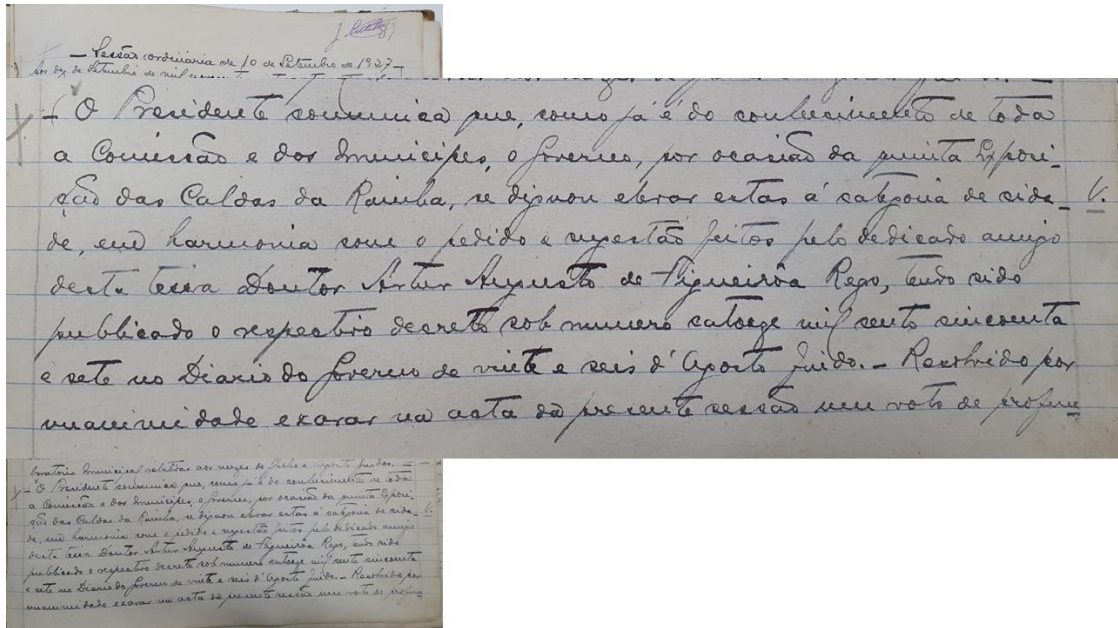 — Sessão ordinaria de 10 de Setembro de 1927 —
Aos dez de Setembro de mil
– O Presidente communica que, como já é do conhecimento de toda
a Comissão e dos municipes, o Governo, por ocasião da quinta Exposi-
ção das Caldas da Rainha, se dignou elevar estas á categoria de cida-
de, em harmonia com o pedido e sugestão feitos pelo dedicado amigo
desta terra Doutor Artur Augusto de Figueirôa Rego, tendo sido
publicado o respectivo decreto sob numero catorze mil cento cincoenta
e sete no Diario do Governo de vinte e seis d'Agosto findo. – Resolvido por
unanimidade exarar na acta da presente sessão um voto de profun
boratorio Municipal relativas aos mezes de Julho e Agosto findos. =
– O Presidente communica que, como já é do conhecimento de toda
a Comissão e dos municipes, o Governo, por ocasião da quinta Exposi-
ção das Caldas da Rainha, se dignou elevar estas á categoria de cida-
de, em harmonia com o pedido e sugestão feitos pelo dedicado amigo
desta terra Doutor Artur Augusto de Figueirôa Rego, tendo sido
publicado o respectivo decreto sob numero catorze mil cento cincoenta
e sete no Diario do Governo de vinte e seis d'Agosto findo. – Resolvido por
unanimidade exarar na acta da presente sessão um voto de profun